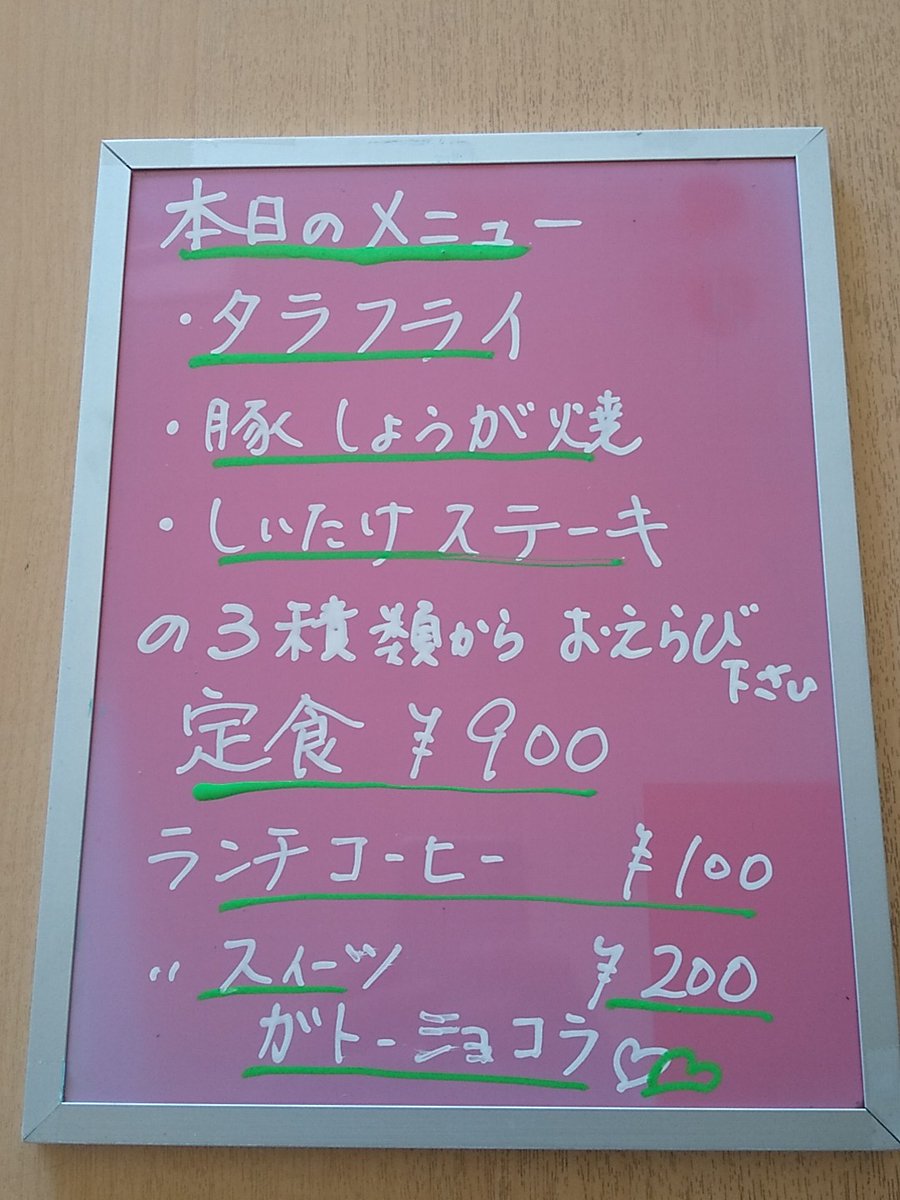 本日のメニュー
・タラフライ
・豚しょうが焼
・しいたけステーキ
の3積類からおえらび
下さい
定食 ¥900
ランチコーヒー ¥100
〃 スイーツ ¥200
ガトーショコラ